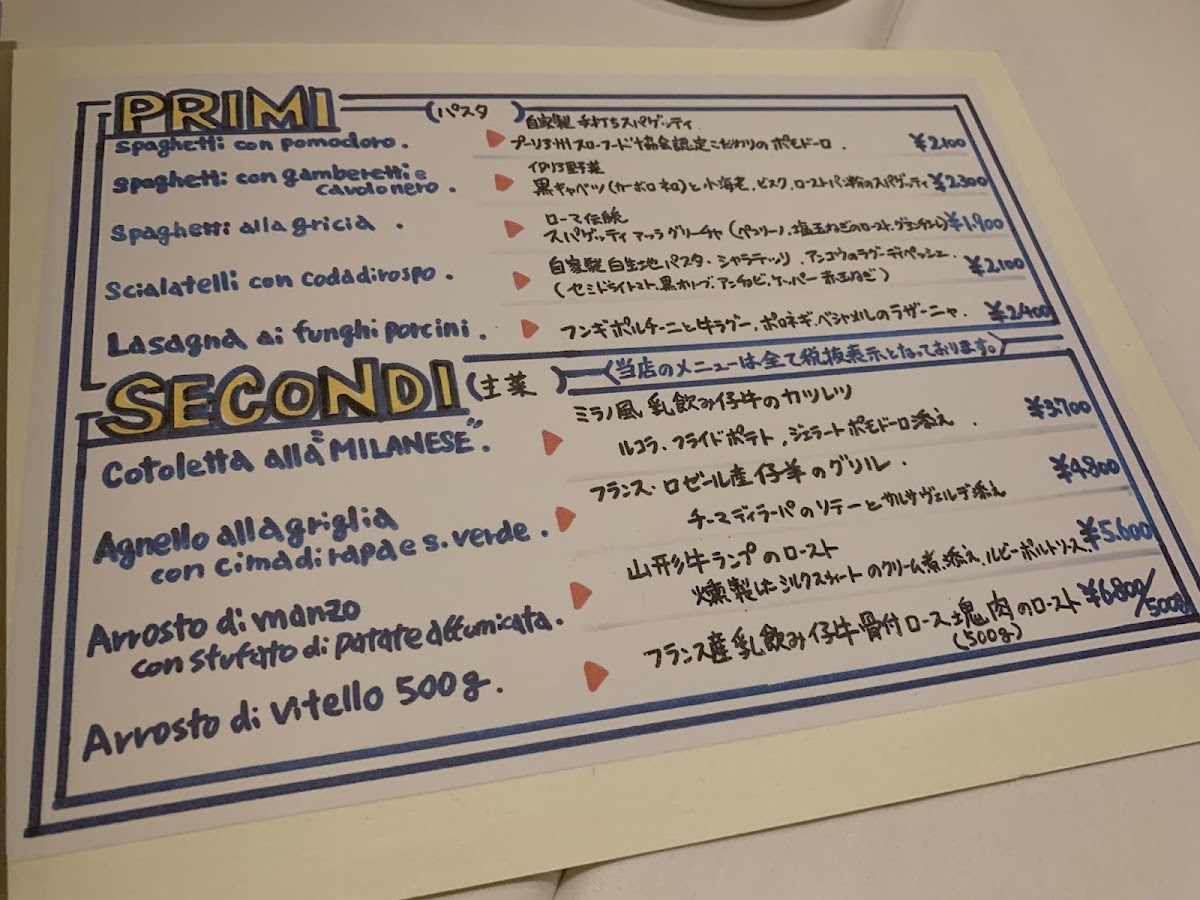 PRIMI (パスタ)
自家製 手打ちスパゲッティ
spaghetti con pomodoro. プーリア州スローフード協会認定こだわりのポモドーロ. ¥2100
イタリア野菜
spaghetti con gamberetti e 黒キャベツ(カーボロネロ)と小海老,ビスク,ローストパン粉のスパゲッティ ¥2300
cavolo nero.
ローマ伝統
Spaghetti alla gricia. スパゲッティ アッラ グリーチャ (ペコリーノ,塩玉ねぎのロースト,グアンチャーレ) ¥1.900
自家製白生地パスタ・シャラテッリ, アンコウのラグーディペッシェ.
Scialatelli con codadirospo. (セミドライトマト,黒オリーブ,アンチョビ,ケーパー 赤玉ねぎ) ¥2,100
Lasagna ai funghi porcini. フンギポルチーニと牛ラグー,ポロネギ,ベシャメルのラザーニャ. ¥2,400
SECONDI (主菜) (当店のメニューは全て税抜表示となっております。)
ミラノ風 乳飲み仔牛のカツレツ
Cotoletta alla "MILANESE". ルコラ,フライドポテト,ジェラートポモドーロ添え. ¥3.700
フランス・ロゼール産仔羊のグリル.
Agnello alla griglia チーマディラーパのソテーとサルサヴェルデ添え ¥4.800
con cima di rapa e s. verde.
山形牛ランプのロースト
Arrosto di manzo 燻製したシルクスウィートのクリーム煮添え,ルビーポルトソース, ¥5.600
con stufato di patate affumicata.
Arrosto di vitello 500g. フランス産乳飲み仔牛骨付ロース塊肉のロースト ¥6.800/500g
(500g)